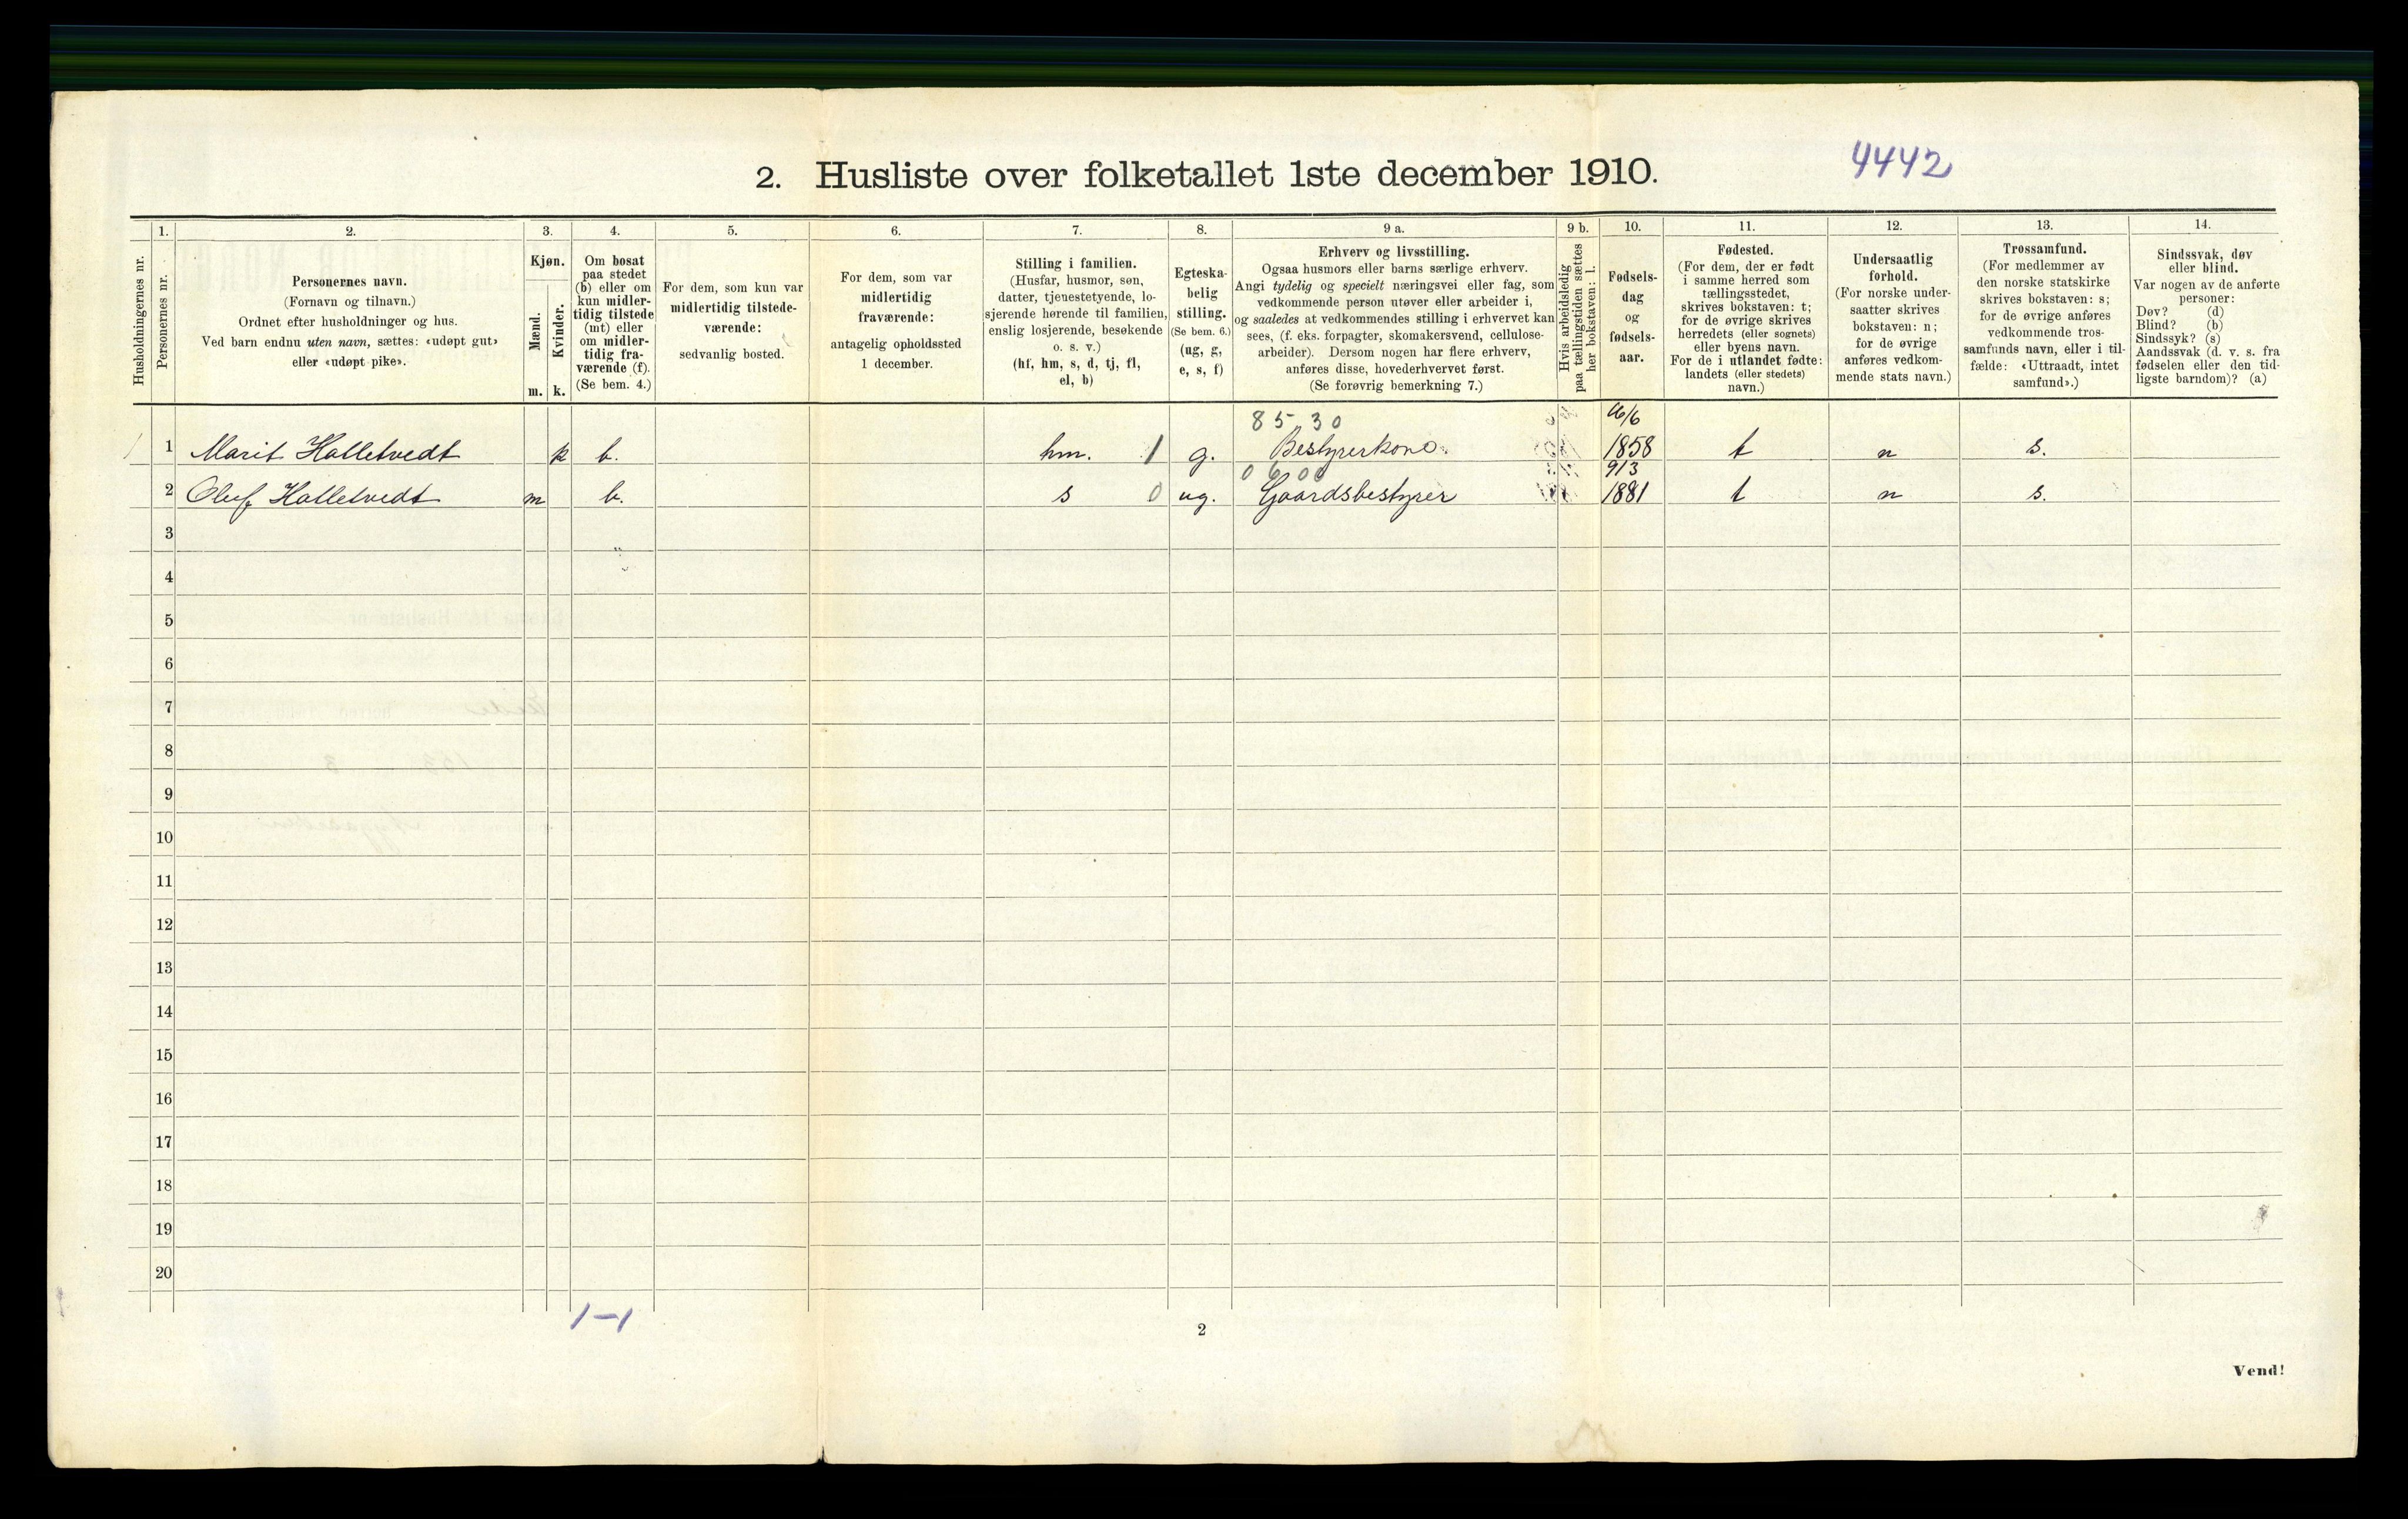 4442
2. Husliste over folketallet 1ste december 1910.
Husholdningernes nr.
1.
Personernes nr.
2.
Personernes navn.
(Fornavn og tilnavn.)
Ordnet efter husholdninger og hus.
Ved barn endnu uten navn, sættes: «udøpt gut»
eller «udøpt pike».
3.
Kjøn.
Mænd.
Kvinder.
m. k.
4.
Om bosat
paa stedet
(b) eller om
kun midler-
tidig tilstede
(mt) eller
om midler-
tidig fra-
værende (f).
(Se bem. 4.)
5.
For dem, som kun var
midlertidig tilstede-
værende:
sedvanlig bosted.
6.
For dem, som var
midlertidig
fraværende:
antagelig opholdssted
1 december.
7.
Stilling i familien.
(Husfar, husmor, søn,
datter, tjenestetyende, lo-
sjerende hørende til familien,
enslig losjerende, besøkende
o. s. v.)
(hf, hm, s, d, tj, fl,
el, b)
8.
Egteska-
belig
stilling.
(Se bem. 6.)
(ug, g,
e, s, f)
9 a.
Erhverv og livsstilling.
Ogsaa husmors eller barns særlige erhverv.
Angi tydelig og specielt næringsvei eller fag, som
vedkommende person utøver eller arbeider i,
og saaledes at vedkommendes stilling i erhvervet kan
sees, (f. eks. forpagter, skomakersvend, cellulose-
arbeider). Dersom nogen har flere erhverv,
anføres disse, hovederhvervet først.
(Se forøvrig bemerkning 7.)
9 b.
Hvis arbeidsledig
paa tællingstiden sættes
her bokstaven: l.
10.
Fødsels-
dag
og
fødsels-
aar.
11.
Fødested.
(For dem, der er født
i samme herred som
tællingsstedet,
skrives bokstaven: t;
for de øvrige skrives
herredets (eller sognets)
eller byens navn.
For de i utlandet fødte:
landets (eller stedets)
navn.)
12.
Undersaatlig
forhold.
(For norske under-
saatter skrives
bokstaven: n;
for de øvrige
anføres vedkom-
mende stats navn.)
13.
Trossamfund.
(For medlemmer av
den norske statskirke
skrives bokstaven: s;
for de øvrige anføres
vedkommende tros-
samfunds navn, eller i til-
fælde: «Uttraadt, intet
samfund».)
14.
Sindssvak, døv
eller blind.
Var nogen av de anførte
personer:
Døv? (d)
Blind? (b)
Sindssyk? (s)
Aandssvak (d. v. s. fra
fødselen eller den tid-
ligste barndom)? (a)
85 30
1 Marit Halletvedt k b. hm. 1 g. Bestyrerkone 1858 t n s.
0600 9/3
2 Oluf Halletvedt m b. s 0 ug. Gaardsbestyrer 1881 t n s.
3
4
5
6
7
8
9
10
11
12
13
14
15
16
17
18
19
20
1-1
2
Vend!